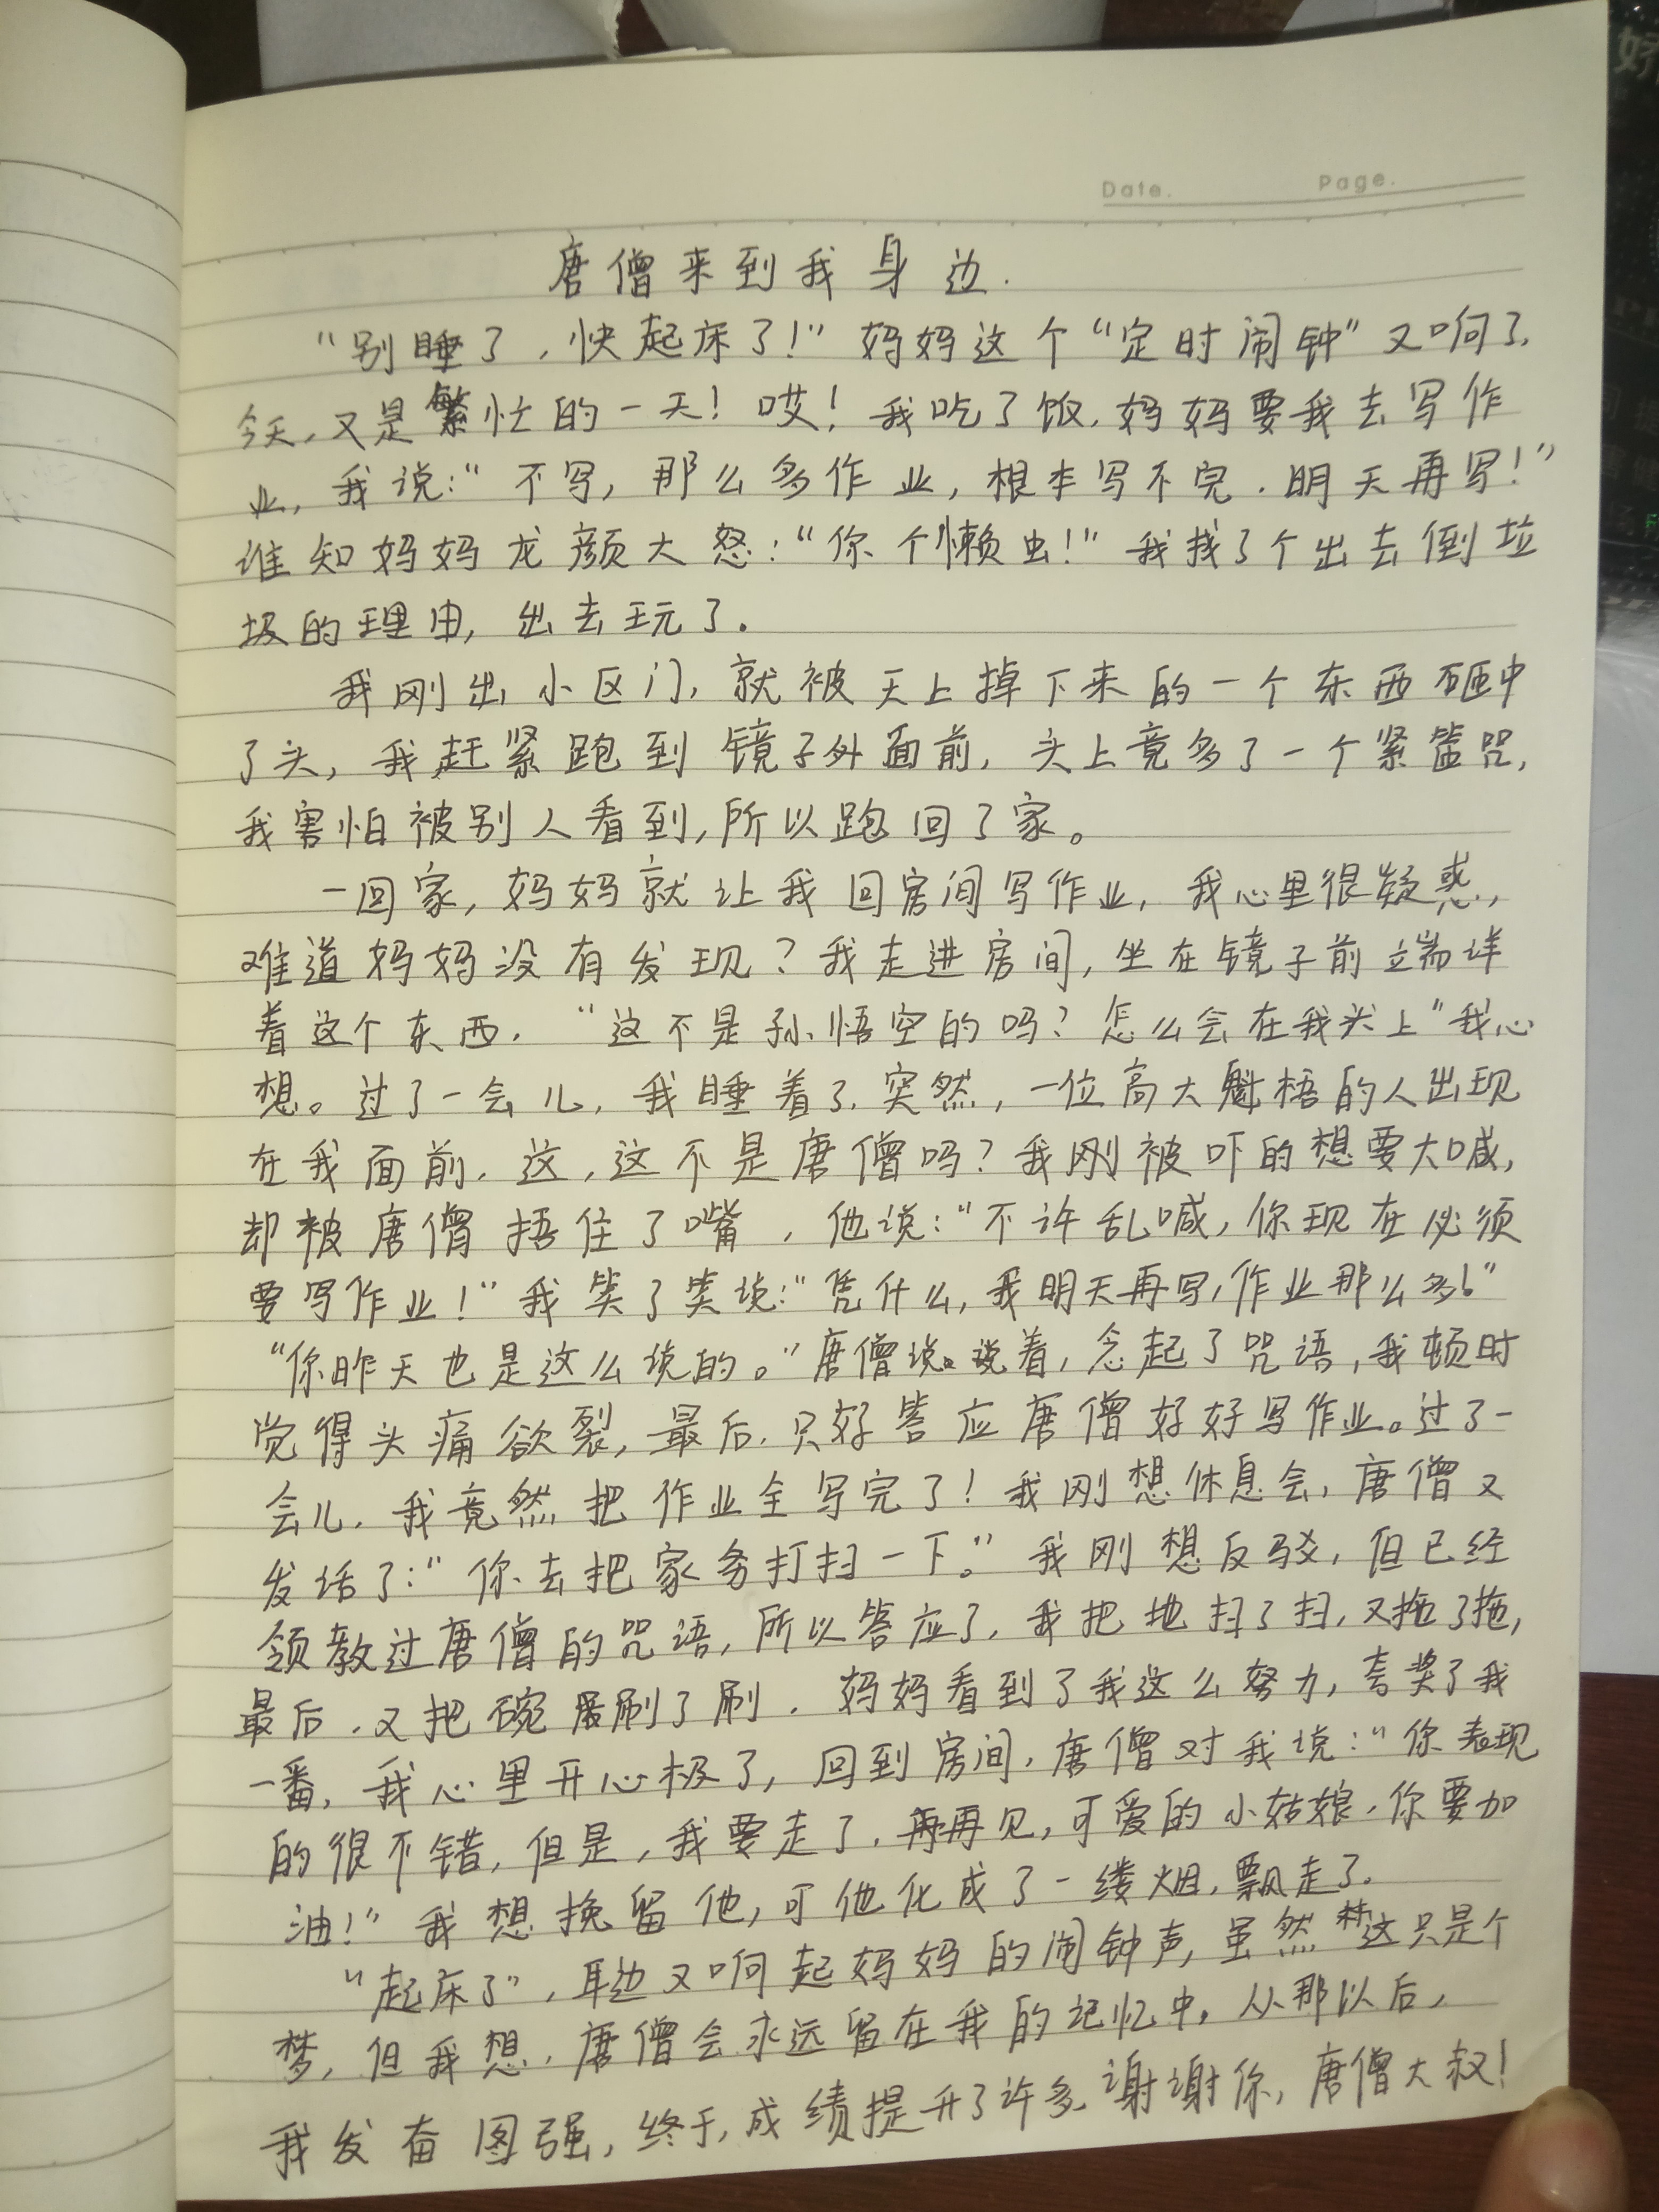 Date. Page.
唐僧来到我身边.
“别睡了，快起床了！”妈妈这个“定时闹钟”又响了，
今天，又是繁忙的一天！哎！我吃了饭，妈妈要我去写作
业，我说：“不写，那么多作业，根本写不完．明天再写！”
谁知妈妈龙颜大怒：“你个懒虫！”我找了个出去倒垃
圾的理由，出去玩了。
我刚出小区门，就被天上掉下来的一个东西砸中
了头，我赶紧跑到镜子外面前，头上竟多了一个紧箍咒，
我害怕被别人看到，所以跑回了家。
一回家，妈妈就让我回房间写作业，我心里很疑惑，
难道妈妈没有发现？我走进房间，坐在镜子前端详
着这个东西．“这不是孙悟空的吗？怎么会在我头上”我心
想。过了一会儿，我睡着了．突然，一位高大魁梧的人出现
在我面前．这，这不是唐僧吗？我刚被吓的想要大喊，
却被唐僧捂住了嘴，他说：“不许乱喊，你现在必须
要写作业！”我笑了笑说：“凭什么，我明天再写，作业那么多！”
“你昨天也是这么说的。”唐僧说。说着，念起了咒语，我顿时
觉得头痛欲裂，最后．只好答应唐僧好好写作业。过了一
会儿．我竟然把作业全写完了！我刚想休息会，唐僧又
发话了：“你去把家务打扫一下。”我刚想反驳，但已经
领教过唐僧的咒语，所以答应了，我把地扫了扫，又拖了拖，
最后．又把碗刷了刷．妈妈看到了我这么努力，夸奖了我
一番，我心里开心极了，回到房间，唐僧对我说：“你表现
的很不错，但是，我要走了．再再见，可爱的小姑娘．你要加
油！”我想挽留他，可他化成了一缕烟，飘走了．
“起床了”，耳边又响起妈妈的闹钟声，虽然这只是个
梦，但我想．唐僧会永远留在我的记忆中．从那以后，
我发奋图强，终于，成绩提升了许多．谢谢你，唐僧大叔！